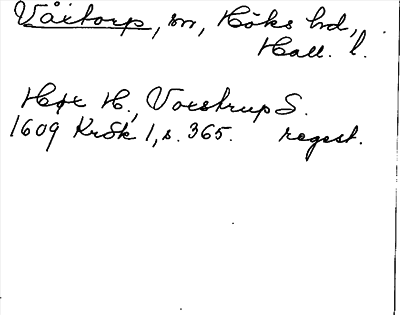 Våxtorp, sn, Höks hd,
Hall. l.
Høx H., Voxtrup S.
1609 KrSk 1, s. 365. regest.